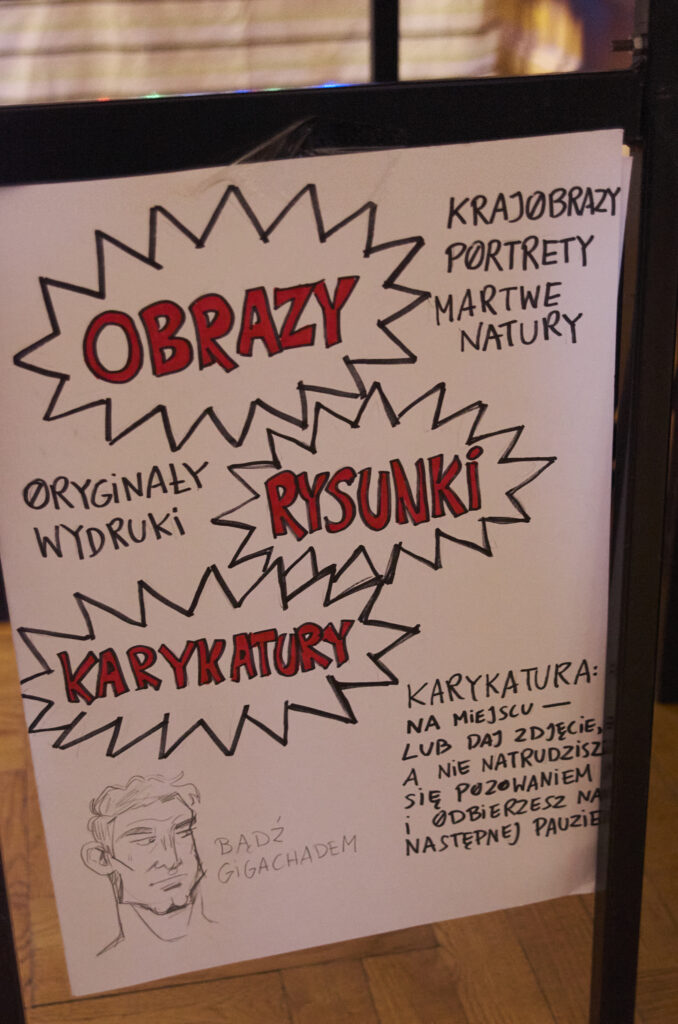 OBRAZY
KRAJOBRAZY
PORTRETY
MARTWE
NATURY
ORYGINAŁY
WYDRUKI
RYSUNKI
KARYKATURY
KARYKATURA:
NA MIEJSCU —
LUB DAJ ZDJĘCIE,
A NIE NATRUDZISZ
SIĘ POZOWANIEM
i ODBIERZESZ NA
NASTĘPNEJ PAUZIE
BĄDŹ
GIGACHADEM